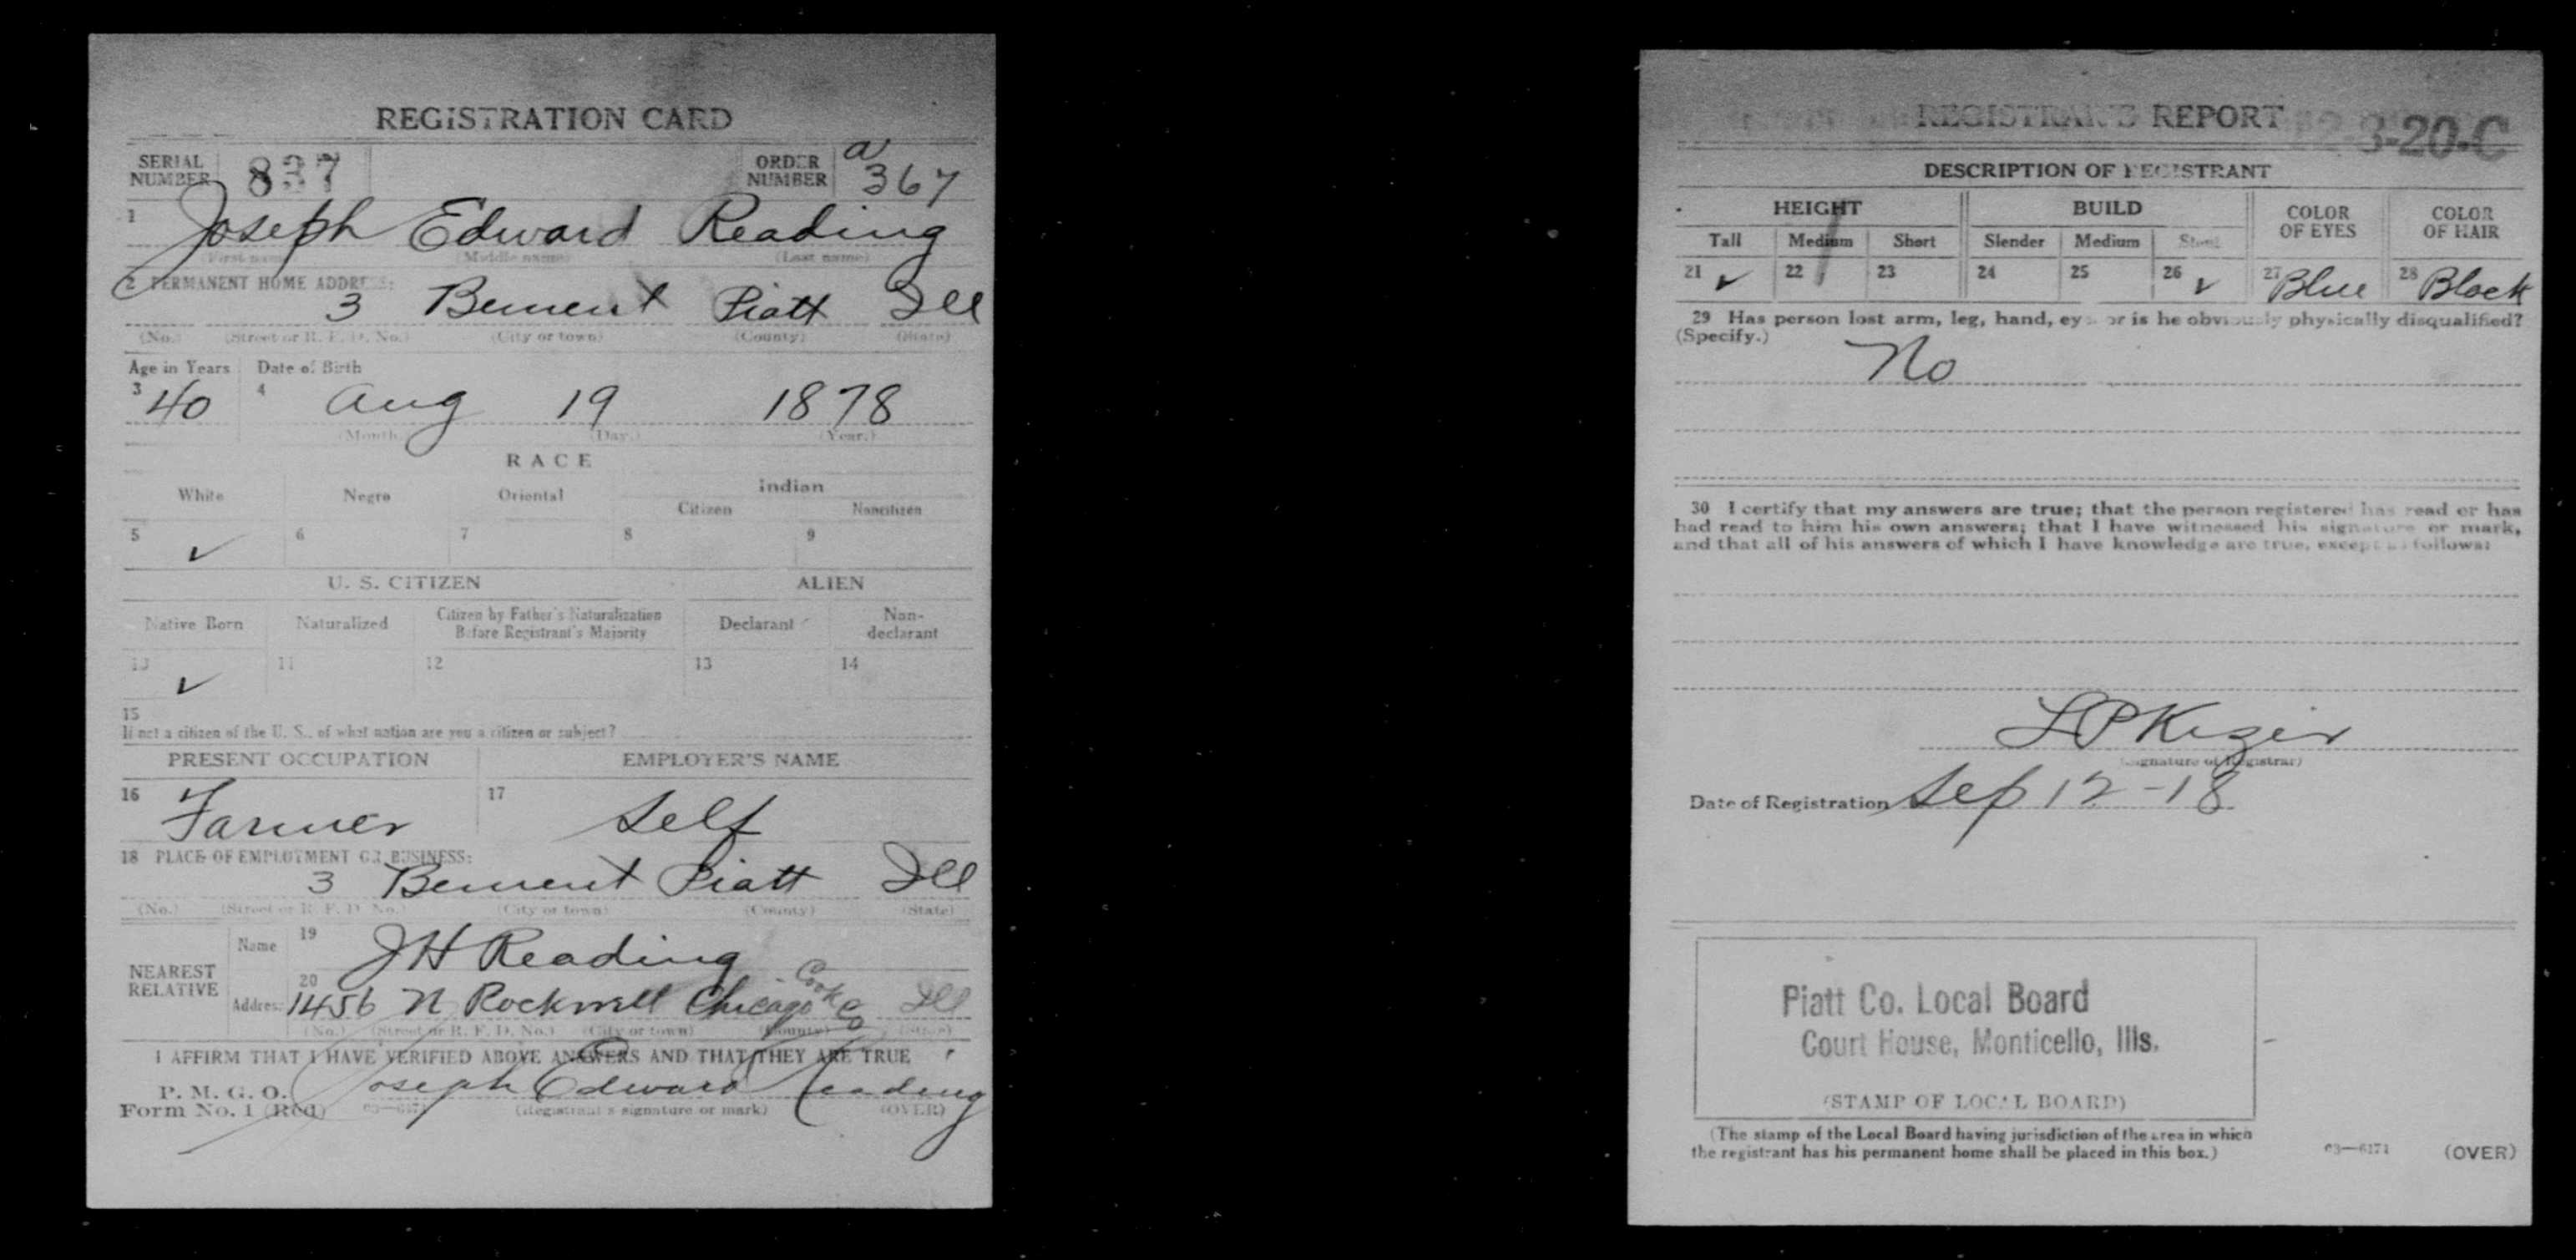 REGISTRATION CARD
SERIAL NUMBER 837 ORDER NUMBER a 367
1 Joseph Edward Reading
(First name) (Middle name) (Last name)
2 PERMANENT HOME ADDRESS:
3 Bement Piatt Ill
(No.) (Street or R. F. D. No.) (City or town) (County) (State)
Age in Years Date of Birth
3 40 4 Aug 19 1878
(Month.) (Day.) (Year.)
RACE
White Negro Oriental Indian
Citizen Noncitizen
5 ✓ 6 7 8 9
U. S. CITIZEN ALIEN
Native Born Naturalized Citizen by Father's Naturalization Before Registrant's Majority Declarant Non-declarant
10 ✓ 11 12 13 14
15
If not a citizen of the U. S., of what nation are you a citizen or subject?
PRESENT OCCUPATION EMPLOYER'S NAME
16 Farmer 17 Self
18 PLACE OF EMPLOYMENT OR BUSINESS:
3 Bement Piatt Ill
(No.) (Street or R. F. D. No.) (City or town) (County) (State)
NEAREST RELATIVE
Name 19 J H Reading
Address 20 1456 N Rockwell Chicago Cook Co Ill
(No.) (Street or R. F. D. No.) (City or town) (County) (State)
I AFFIRM THAT I HAVE VERIFIED ABOVE ANSWERS AND THAT THEY ARE TRUE
P. M. G. O.
Form No. 1 (Red) 03—6171 Joseph Edward Reading
(Registrant's signature or mark) (OVER)
REGISTRAR'S REPORT
3-20-C
DESCRIPTION OF REGISTRANT
HEIGHT BUILD COLOR OF EYES COLOR OF HAIR
Tall Medium Short Slender Medium Stout
21 ✓ 22 23 24 25 26 ✓ 27 Blue 28 Black
29 Has person lost arm, leg, hand, eye, or is he obviously physically disqualified?
(Specify.)
No
30 I certify that my answers are true; that the person registered has read or has
had read to him his own answers; that I have witnessed his signature or mark,
and that all of his answers of which I have knowledge are true, except as follows:
L P Kizer
(Signature of Registrar)
Date of Registration Sep 12-18
Piatt Co. Local Board
Court House, Monticello, Ills.
(STAMP OF LOCAL BOARD)
(The stamp of the Local Board having jurisdiction of the area in which
the registrant has his permanent home shall be placed in this box.)
03—6171 (OVER)